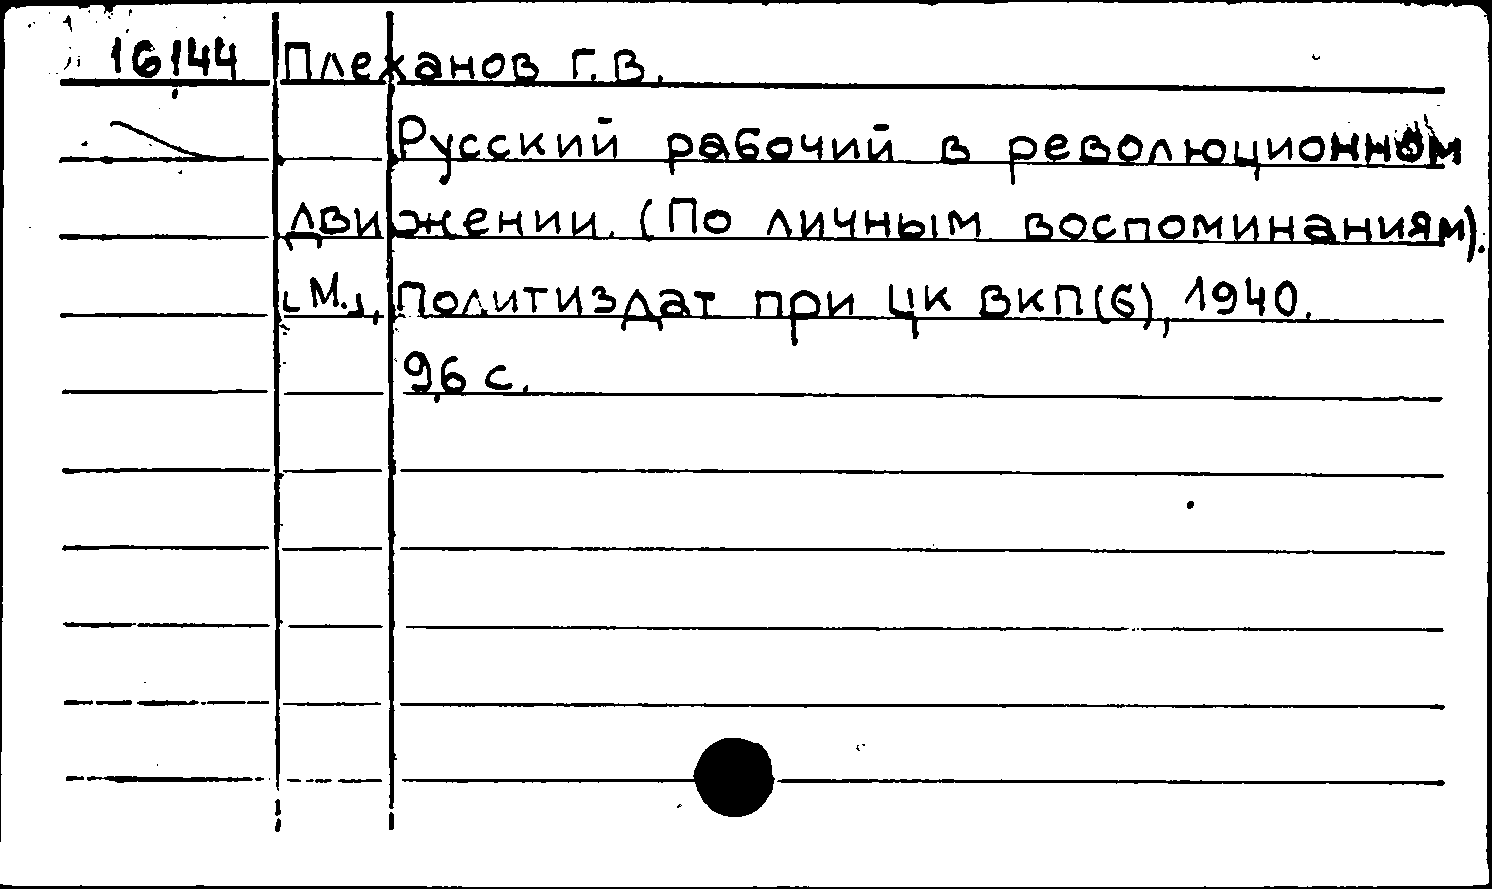 16144 Плеханов Г.В.
Русский рабочий в революционном
движении. (По личным воспоминаниям).
[М.], Политиздат при ЦК ВКП(б), 1940.
96 с.